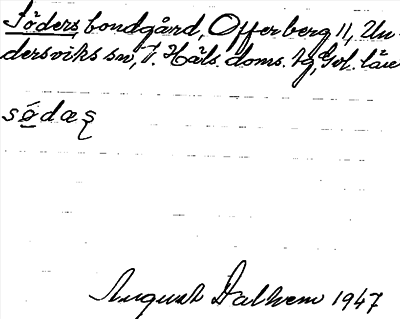 Söders, bondgård, Offerberg 11, Un-
dersviks sn, V. Häls. doms. tg, Gvl. län
södæs
August Dalhem 1947